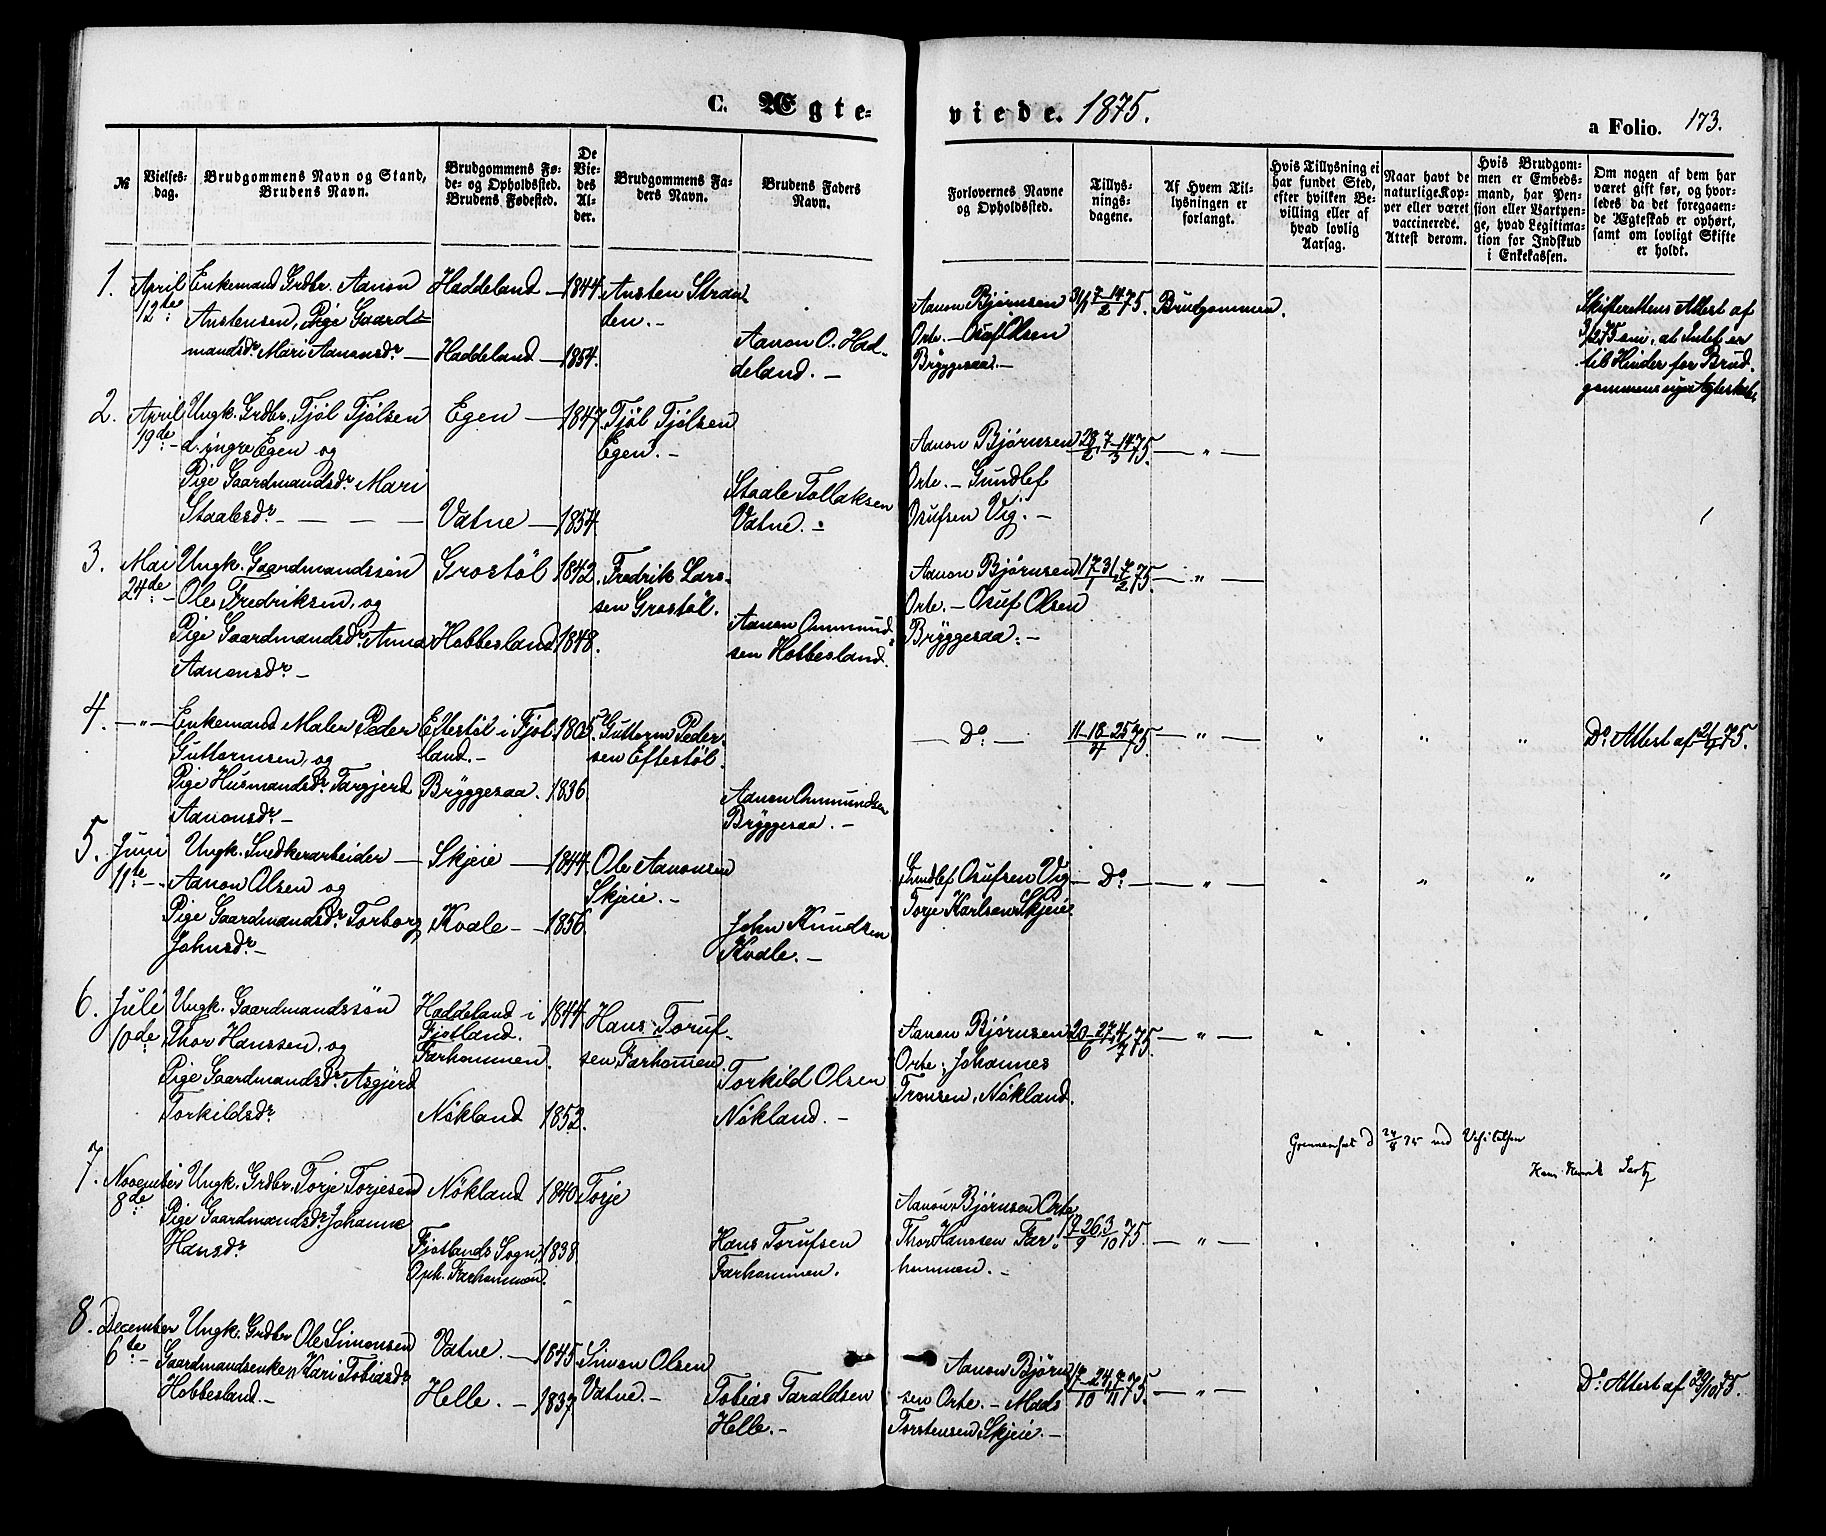 C. Ægteviede. 1875.
a Folio. 173.
№
Vielsesdag.
Brudgommens Navn og Stand, Brudens Navn.
Brudgommens Føde- og Opholdssted. Brudens Fødested.
De Viedes Alder.
Brudgommens Faders Navn.
Brudens Faders Navn.
Forlovernes Navne og Opholdssted.
Tillysningsdagene.
Af Hvem Tillysningen er forlangt.
Hvis Tillysning ei har fundet Sted, efter hvilken Bevilling eller af hvad lovlig Aarsag.
Naar havt de naturlige Kopper eller været vaccinerede. Attest derom.
Hvis Brudgommen er Embedsmand, har Pension eller Vartpenge, hvad Legitimation for Indskud i Enkekassen.
Om nogen af dem har været gift før, og hvorledes da det foregaaende Ægteskab er ophørt, samt om lovligt Skifte er holdt.
1. April 12te
Enkemand Grdbr. Aanon
Austensen, Pige Gaard-
mandsdr. Mari Aanonsdr. —
Haddeland — 1844.
Haddeland — 1854.
Austen Stran-
den. —
Aanon O. Had-
deland. —
Aanon Bjørnsen
Orte. — Osuf Olsen
Bryggesaa. —
31/1 7–14/2 75.
Brudgommen.
Skifterettens Attest af
3/2 75 om, at Intet er
til Hinder for Brud-
gommens nye Ægteskab.
2. April 19de —
Ungk. Grdbr. Tjøl Tjølsen
d. yngre Egen og
Pige Gaardmandsdr. Mari
Staalesdr. — — —
Egen — 1847.
Vatne — 1854.
Tjøl Tjølsen
Egen. —
Staale Tollaksen
Vatne. —
Aanon Bjørnsen
Orte. — Gundlef
Osufsen Vig. —
28/2, 7–14/3 75.
— " —
3. Mai 24de —
Ungk. Gaardmandssøn
Ole Fredriksen, og
Pige Gaardmandsdr. Anna
Aanonsdr. —
Grostøl 1842.
Hobbesland 1848.
Fredrik Lars-
sen Grostøl.
Aanon Ommund-
sen Hobbesland.
Aanon Bjørnsen
Orte. — Osuf Olsen
Bryggesaa. —
17–31/1, 7/2 75.
— " —
4. — " —
Enkemand Maler Peder
Guttormsen, og
Pige Husmandsdr. Targjerd
Aanonsdr. —
Eftestøl i Fjot-
land. —
1805.
Bryggesaa. 1836.
Guttorm Peder-
sen Eftestøl.
Aanon Ommundsen
Bryggesaa. —
— Do: —
11–18–25/4 75
— " —
" " "
Do: Attest af 21/4 75.
5. Juni 11te —
Ungk. Snedkerarbeider —
Aanon Olsen og
Pige Gaardmandsdr. Torborg
Johnsdr. —
Skjeie — 1844.
Kvale — 1856.
Ole Aanonsen
Skjeie. —
John Knudsen
Kvale. —
Gundlef Osufsen Vig
Torje Karlsen Skjeie
— Do: —
— " —
" " " "
6. Juli 10de
Ungk. Gaardmandssøn
Thor Hanssen, og
Pige Gaardmandsdr. Asgjerd
Torkildsdr.
Haddeland i
Fjotland.
Farhommen.
1844.
Nøkland 1852.
Hans Toruf-
sen Farhommen.
Torkild Olsen
Nøkland. —
Aanon Bjørnsen
Orte; Johannes
Tronsen, Nøkland.
20–27/6, 4/7 75.
— " —
Gjennemseet d 24/8 75 ved Visitatsen
7. November 8de
Ungk. Grdbr. Torje Torjesen
Pige Gaardmandsdr. Johanne
Hansdr.
Nøkland 1840.
Fjotlands Sogn,
Oph. Farhommen.
1838.
Torje
Hans Torufsen
Farhommen.
Aanon Bjørnsen Orte,
Thor Hanssen Far-
hommen. —
19–26/9 3/10 75.
— " —
8. December 6te —
Ungk. Grdbr. Ole Simonsen
Gaardmandsenke Kari Tobiasdr.
Hobbesland. —
Vatne. — 1845.
Helle. — 1837.
Simon Olsen
Vatne. —
Tobias Taraldsen
Helle. —
Aanon Bjørn-
sen Orte. — Mads
Torstensen Skjeie. —
17–24/10, 7/11 75.
— " —
Do: Attest af 29/10 75.